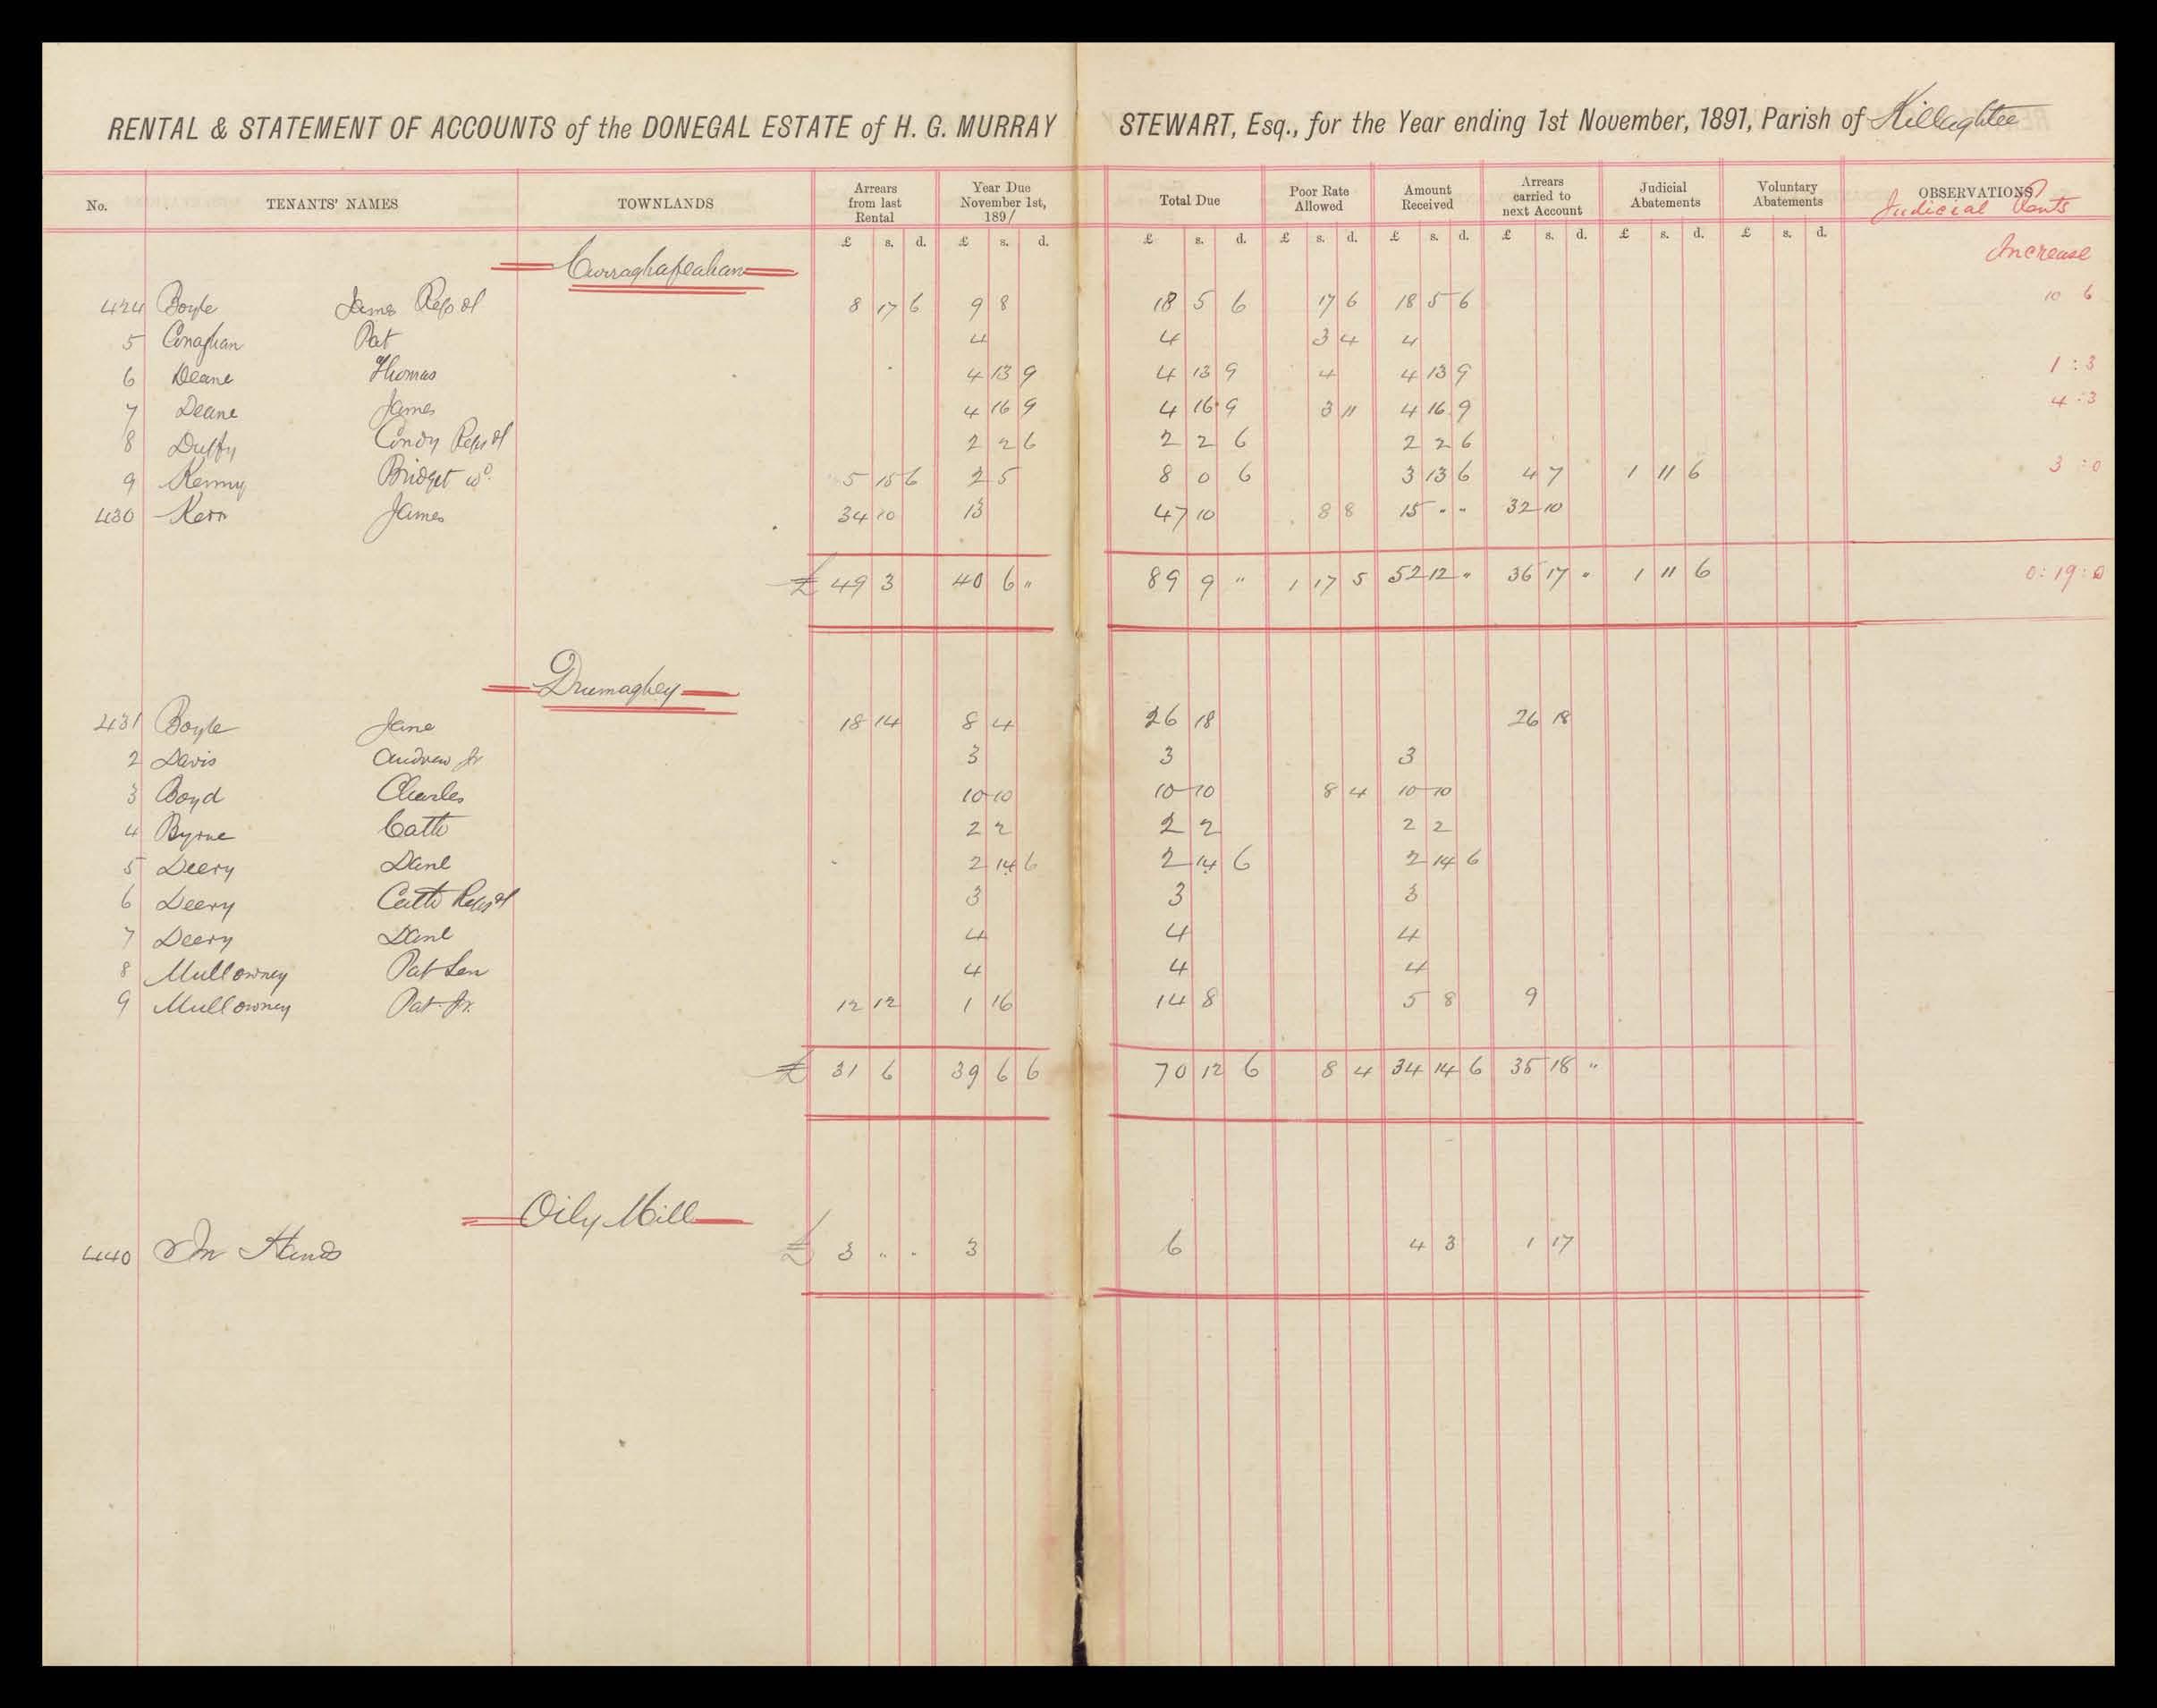 RENTAL & STATEMENT OF ACCOUNTS of the DONEGAL ESTATE of H. G. MURRAY STEWART, Esq., for the Year ending 1st November, 1891, Parish of Killaghtee
No. TENANTS' NAMES TOWNLANDS Arrears from last Rental Year Due November 1st, 1891 Total Due Poor Rate Allowed Amount Received Arrears carried to next Account Judicial Abatements Voluntary Abatements OBSERVATIONS
Judicial Rents
£ s. d. £ s. d. £ s. d. £ s. d. £ s. d. £ s. d. £ s. d. £ s. d. Increase
424 Boyle James Reps of 8 17 6 9 8 18 5 6 17 6 18 5 6 10 6
5 Conaghan Pat 4 4 3 4 4
6 Deane Thomas 4 13 9 4 13 9 4 4 13 9 1 : 3
7 Deane James 4 16 9 4 16 9 3 11 4 16 9 4 : 3
8 Duffy Condy Reps of 2 2 6 2 2 6 2 2 6
9 Kenny Bridget wd. 5 15 6 2 5 8 0 6 3 13 6 4 7 1 11 6 3 : 0
430 Kerr James 34 10 13 47 10 8 8 15 " " 32 10
£ 49 3 40 6 " 89 9 " 1 17 5 52 12 " 36 17 " 1 11 6 0 : 19 : 0
Drumaghey
431 Boyle Jane 18 14 8 4 26 18 26 18
2 Davis Andrew Jr 3 3 3
3 Boyd Charles 10 10 10 10 8 4 10 10
4 Byrne Cath 2 2 2 2 2 2
5 Deery Danl 2 14 6 2 14 6 2 14 6
6 Deery Cath Reps of 3 3 3
7 Deery Danl 4 4 4
8 Mullowney Pat Sen 4 4 4
9 Mullowney Pat Jr. 12 12 1 16 14 8 5 8 9
£ 31 6 39 6 6 70 12 6 8 4 34 14 6 35 18 "
Oily Mill
440 In Hands £ 3 " " 3 6 4 3 1 17